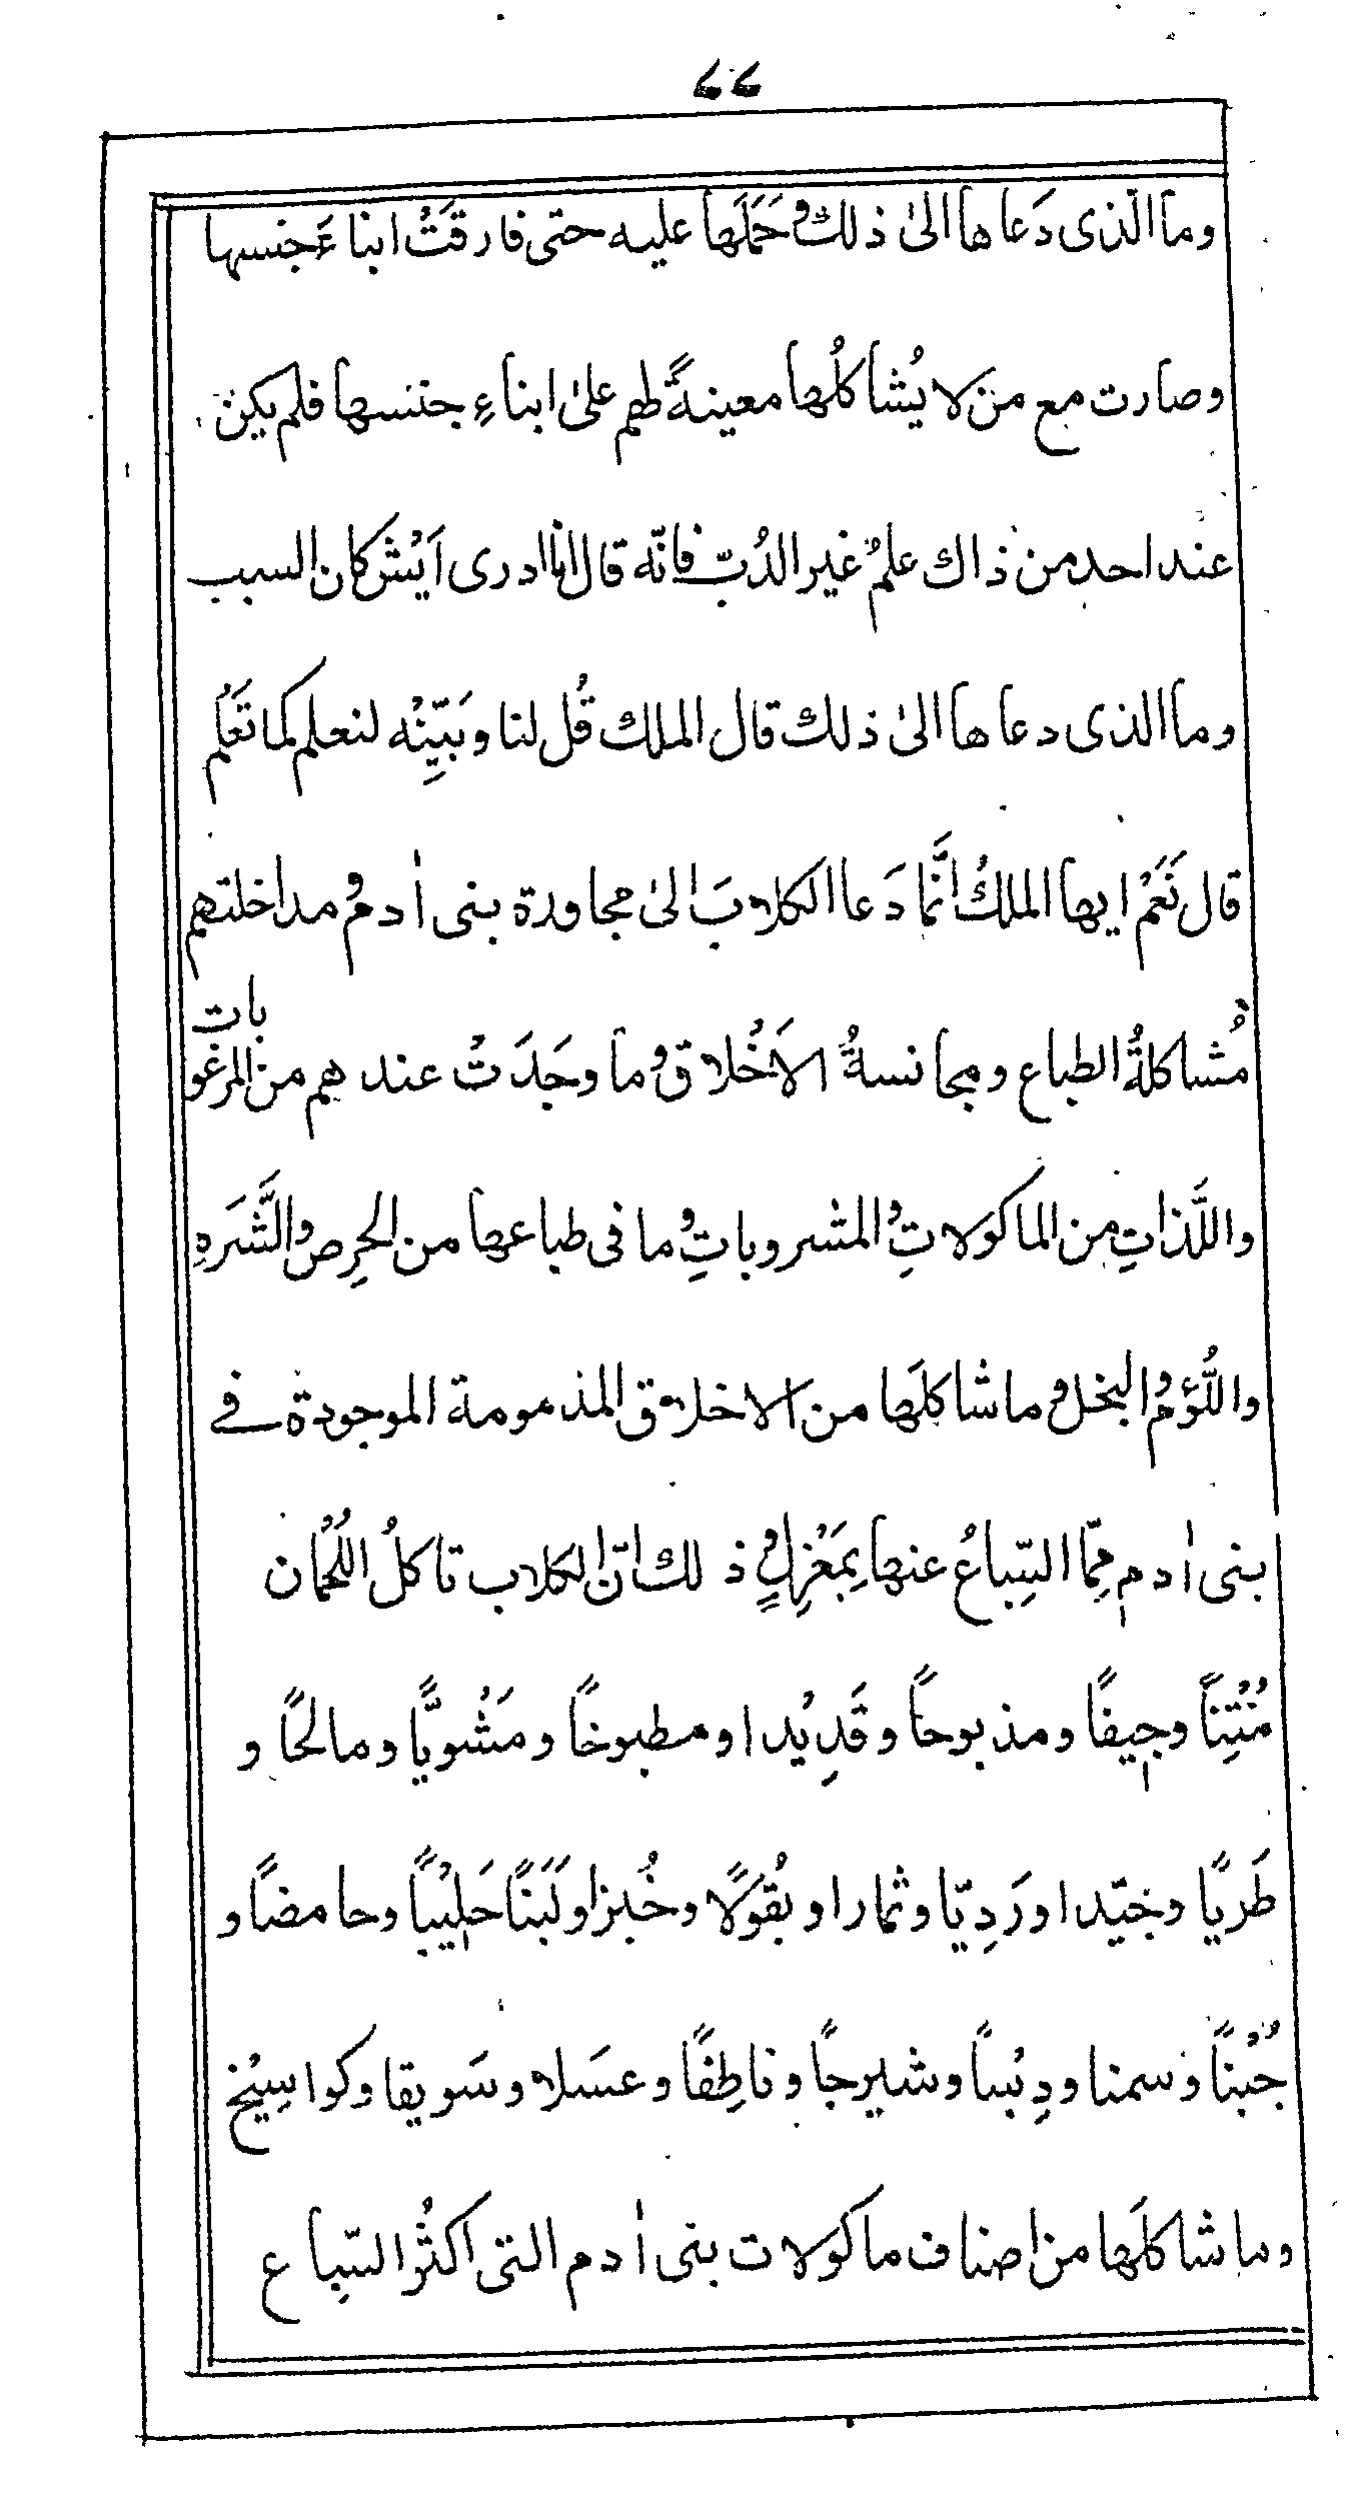 ۷۷
وما الّذى دَعاها الىٰ ذلك وحَمَلَها عليه حتى فارقَتْ ابناءَ جنسها
وصارت مع من لا يُشاكلُها معينةً لهم علىٰ ابناءِ جنسها فلم يكن
عند احد من ذاك علمٌ غير الدُبّ فانّه قال انا ادرى اَيْش كان السبب
وما الذى دعاها الىٰ ذلك قال الملك قُل لنا وبَيِّنْه لنعلم كما تَعْلَم
قال نَعَمْ ايها الملكُ انَّما دَعا الكلابَ الىٰ مجاورة بنى اٰدم ومداخلتهم
مُشاكلةُ الطباع ومجانسةُ الاَخْلاق وما وجَدَتْ عندهم من المرغوبات
واللَّذاتِ من الماكولاتِ والمشروباتِ وما فى طباعها من الحِرص والشَّرَهِ
واللُّؤم والبخل وما شاكلَها من الاخلاق المذمومة الموجودة فے
بنى اٰدم مِمّا السِّباعُ عنها بِمَعْزِلٍ وذلك انّ الكلاب تاكلُ اللُحْمان
مُنْتِنًا وجِيفًا ومذبوحًا وقَدِيْدا ومطبوخًا ومَشْويًّا ومالحًا و
طَريًا وجيّدا ورَدِيّا وثمارا وبُقولًا وخُبزا ولَبَنًا حَلِيْبًا وحامضًا و
جُبْنًا وسمنا ودِبْسًا وشيرجًا وناطِفًا وعسَلا وسَويقا وكواسِيْخ
وما شاكلَها من اصناف ماكولات بنى اٰدم التى اكثرُ السّباع